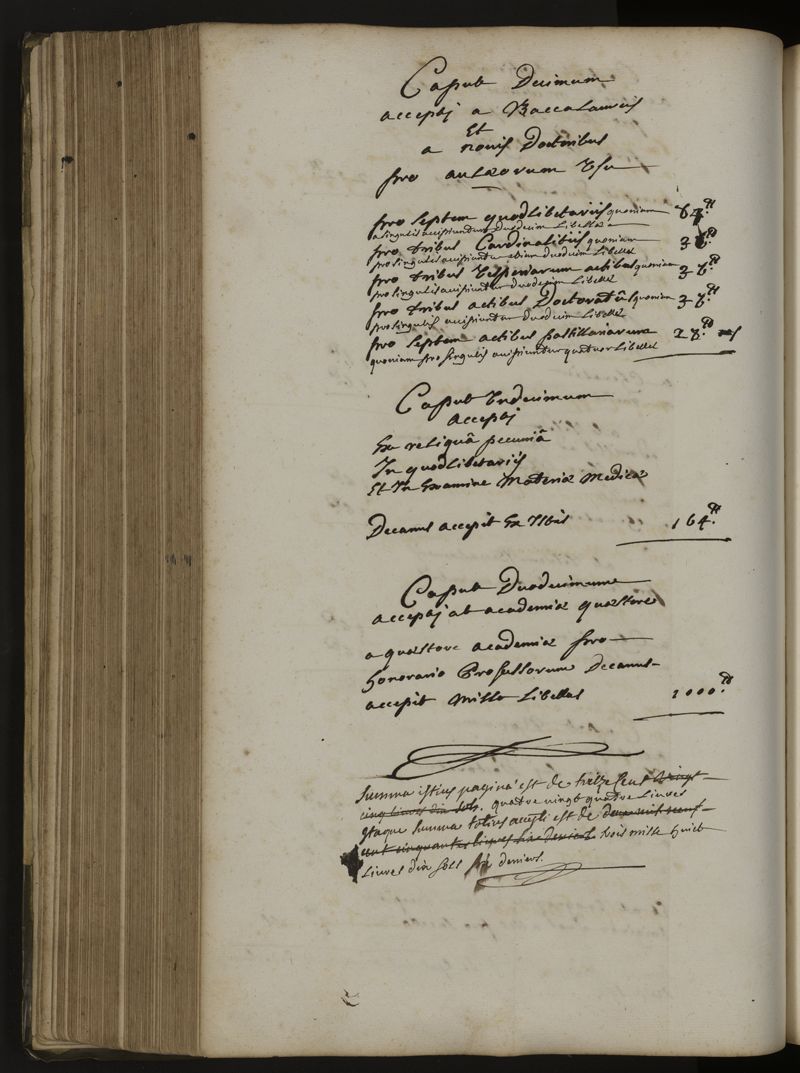 Caput Decimum
accepti a Baccalaureis
Et
a novis Doctoribus
pro aulaeorum Usu
pro septem quodlibetariis quoniam 84.tt
a singulis accipiuntur duodecim libellae
pro tribus Cardinalitiis quoniam 36.tt
pro singulis accipiuntur etiam duodecim libellae
pro tribus Vesperiarum actibus quoniam 36.tt
pro singulis accipiuntur duodecim libellae
pro tribus actibus Doctoratûs quoniam 36.tt
pro singulis accipiuntur duodecim libellae
pro septem actibus pastillariarum 28.tt
quoniam pro singulis accipiuntur quatuor libellae
Caput Undecimum
accepti
Ex reliquâ pecuniâ
In quodlibetariis
Et In Examine Materiae Medicae
Decanus accepit Ex Istis 164.tt
Caput Duodecimum
accepti ab academiae quaestore
a quaestore academiae pro
honorario Professorum Decanus
accepit mille libellas 1000.tt
Summa istius paginae est de treize cent vingt
cinq livres dix sols. quatre vingt quatre livres
itaque summa totius accepti est de deux mil neuf
cent cinquante livres six deniers trois mille huict
livres dix sols six deniers.